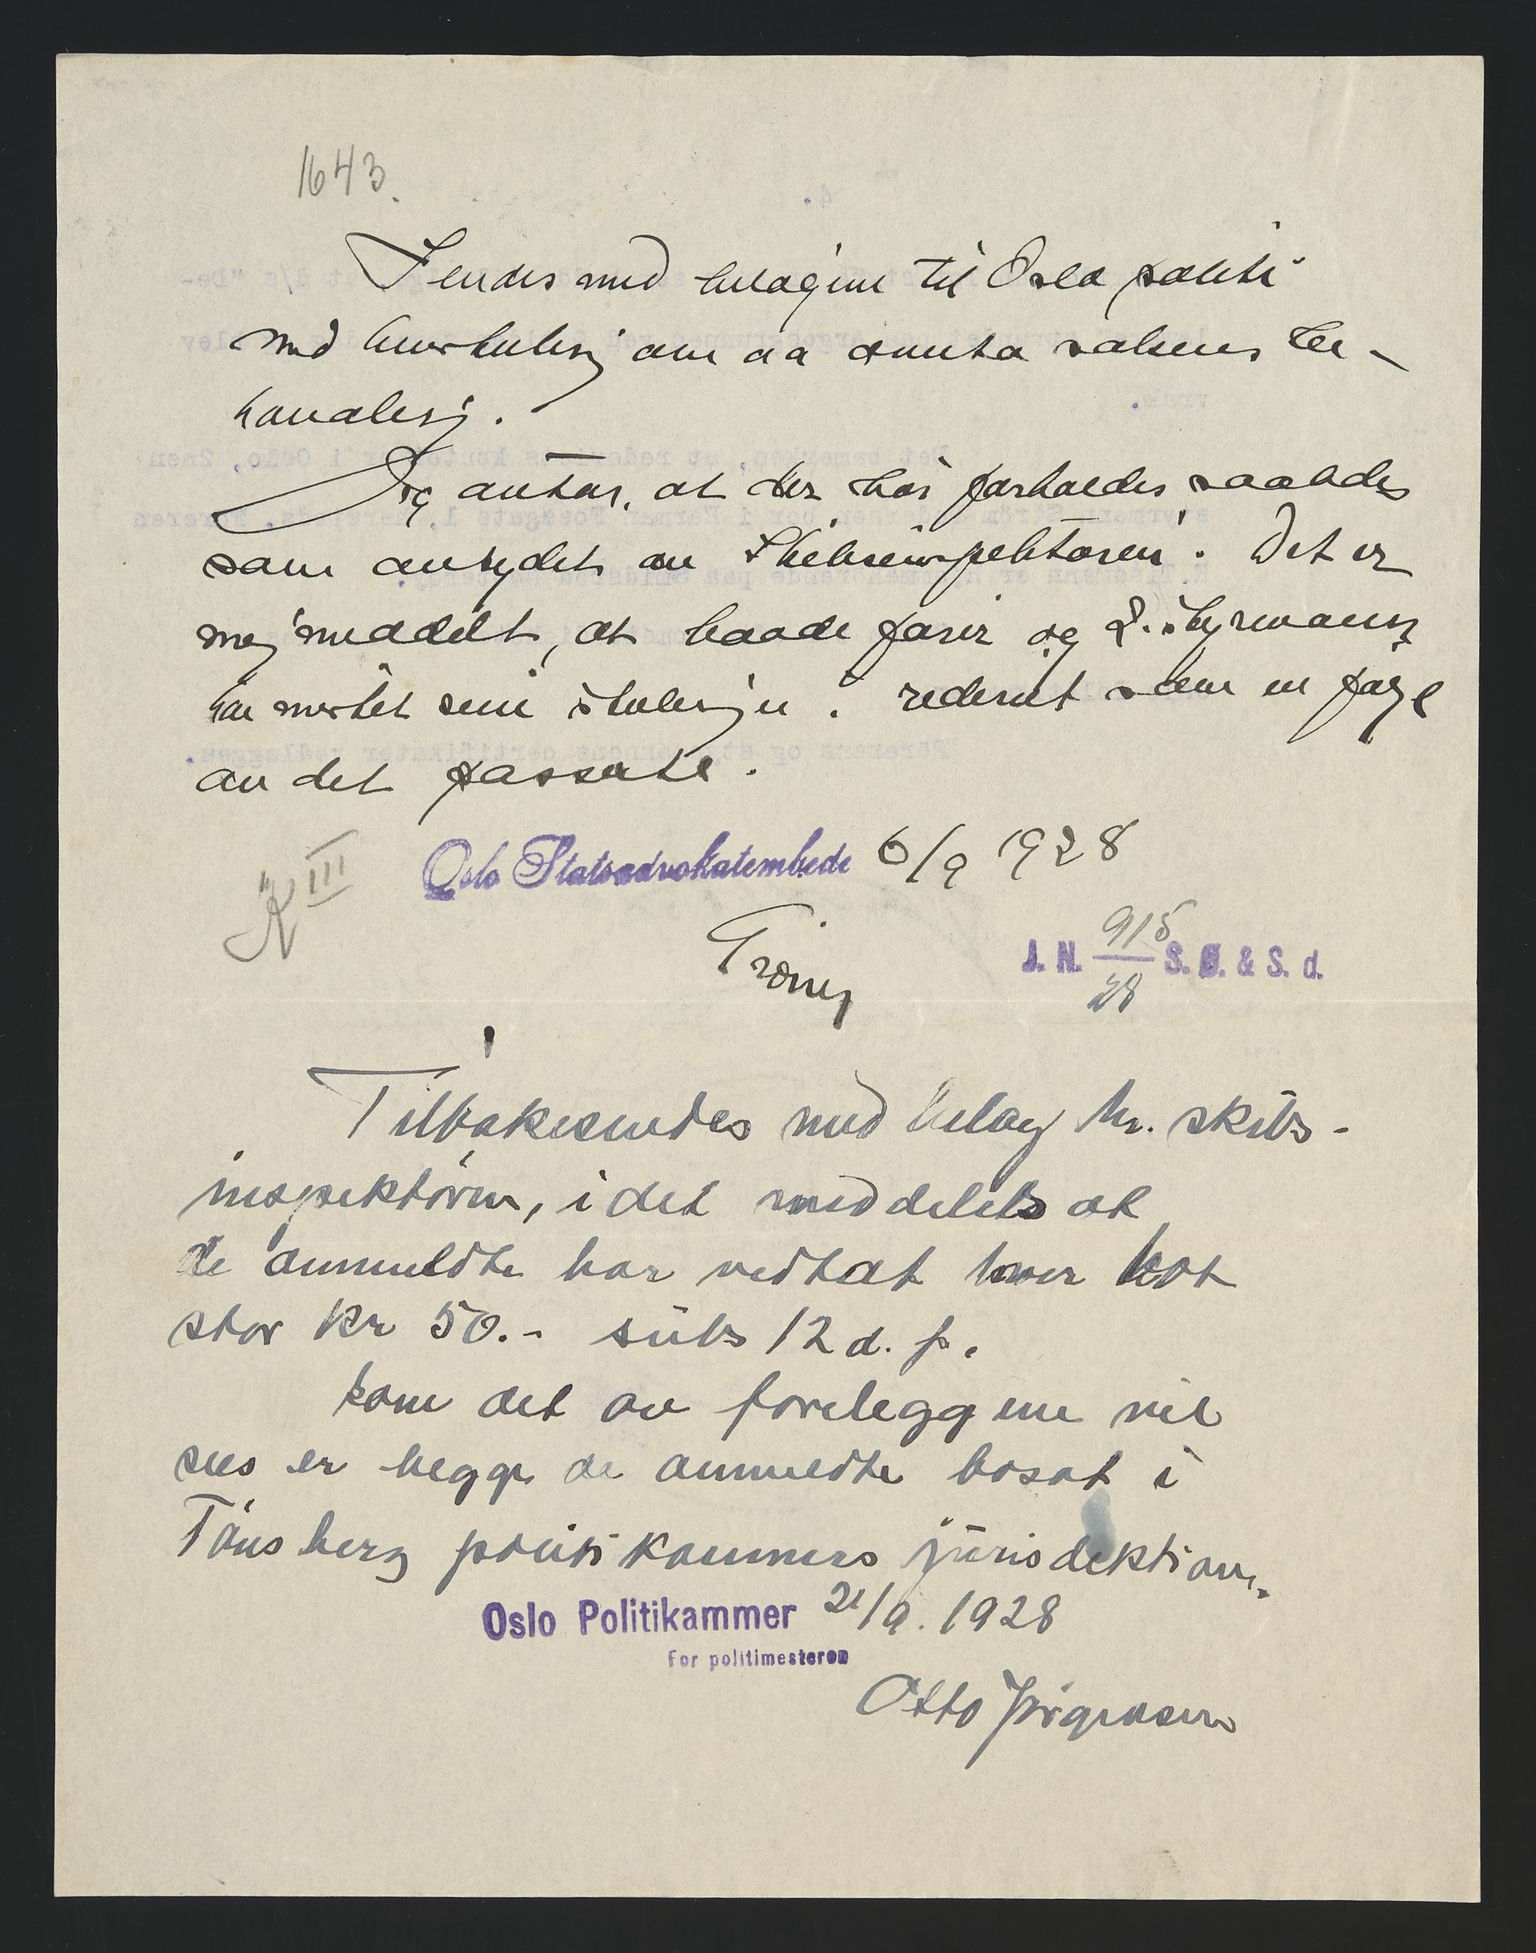 1643.
Sendes med bilagene til Oslo politi
med henstilling om aa ta sakens be-
handling.
Jeg antar, at der bør forholdes saaledes
som antydet av Skibsinspektøren. Det er
mig meddelt, at baade fører og 2. styrmann
har mistet sine stillinger i rederiet som en følge
av det passerte.
K III
Oslo Statsadvokatembede 6/9 1928
J. N. 915/28 S. Ø. & S. d.
Tilbakesendes med bilag hr. skibs-
inspektøren, idet meddeles at
de anmeldte har vedtat hver bot
stor kr 50.- subs 12 d. f.
Som det av foreleggene vil
sees er begge de anmeldte bosat i
Tønsberg politikammers jurisdiktion.
Oslo Politikammer 21/9. 1928
For politimesteren
Otto Jørgensen